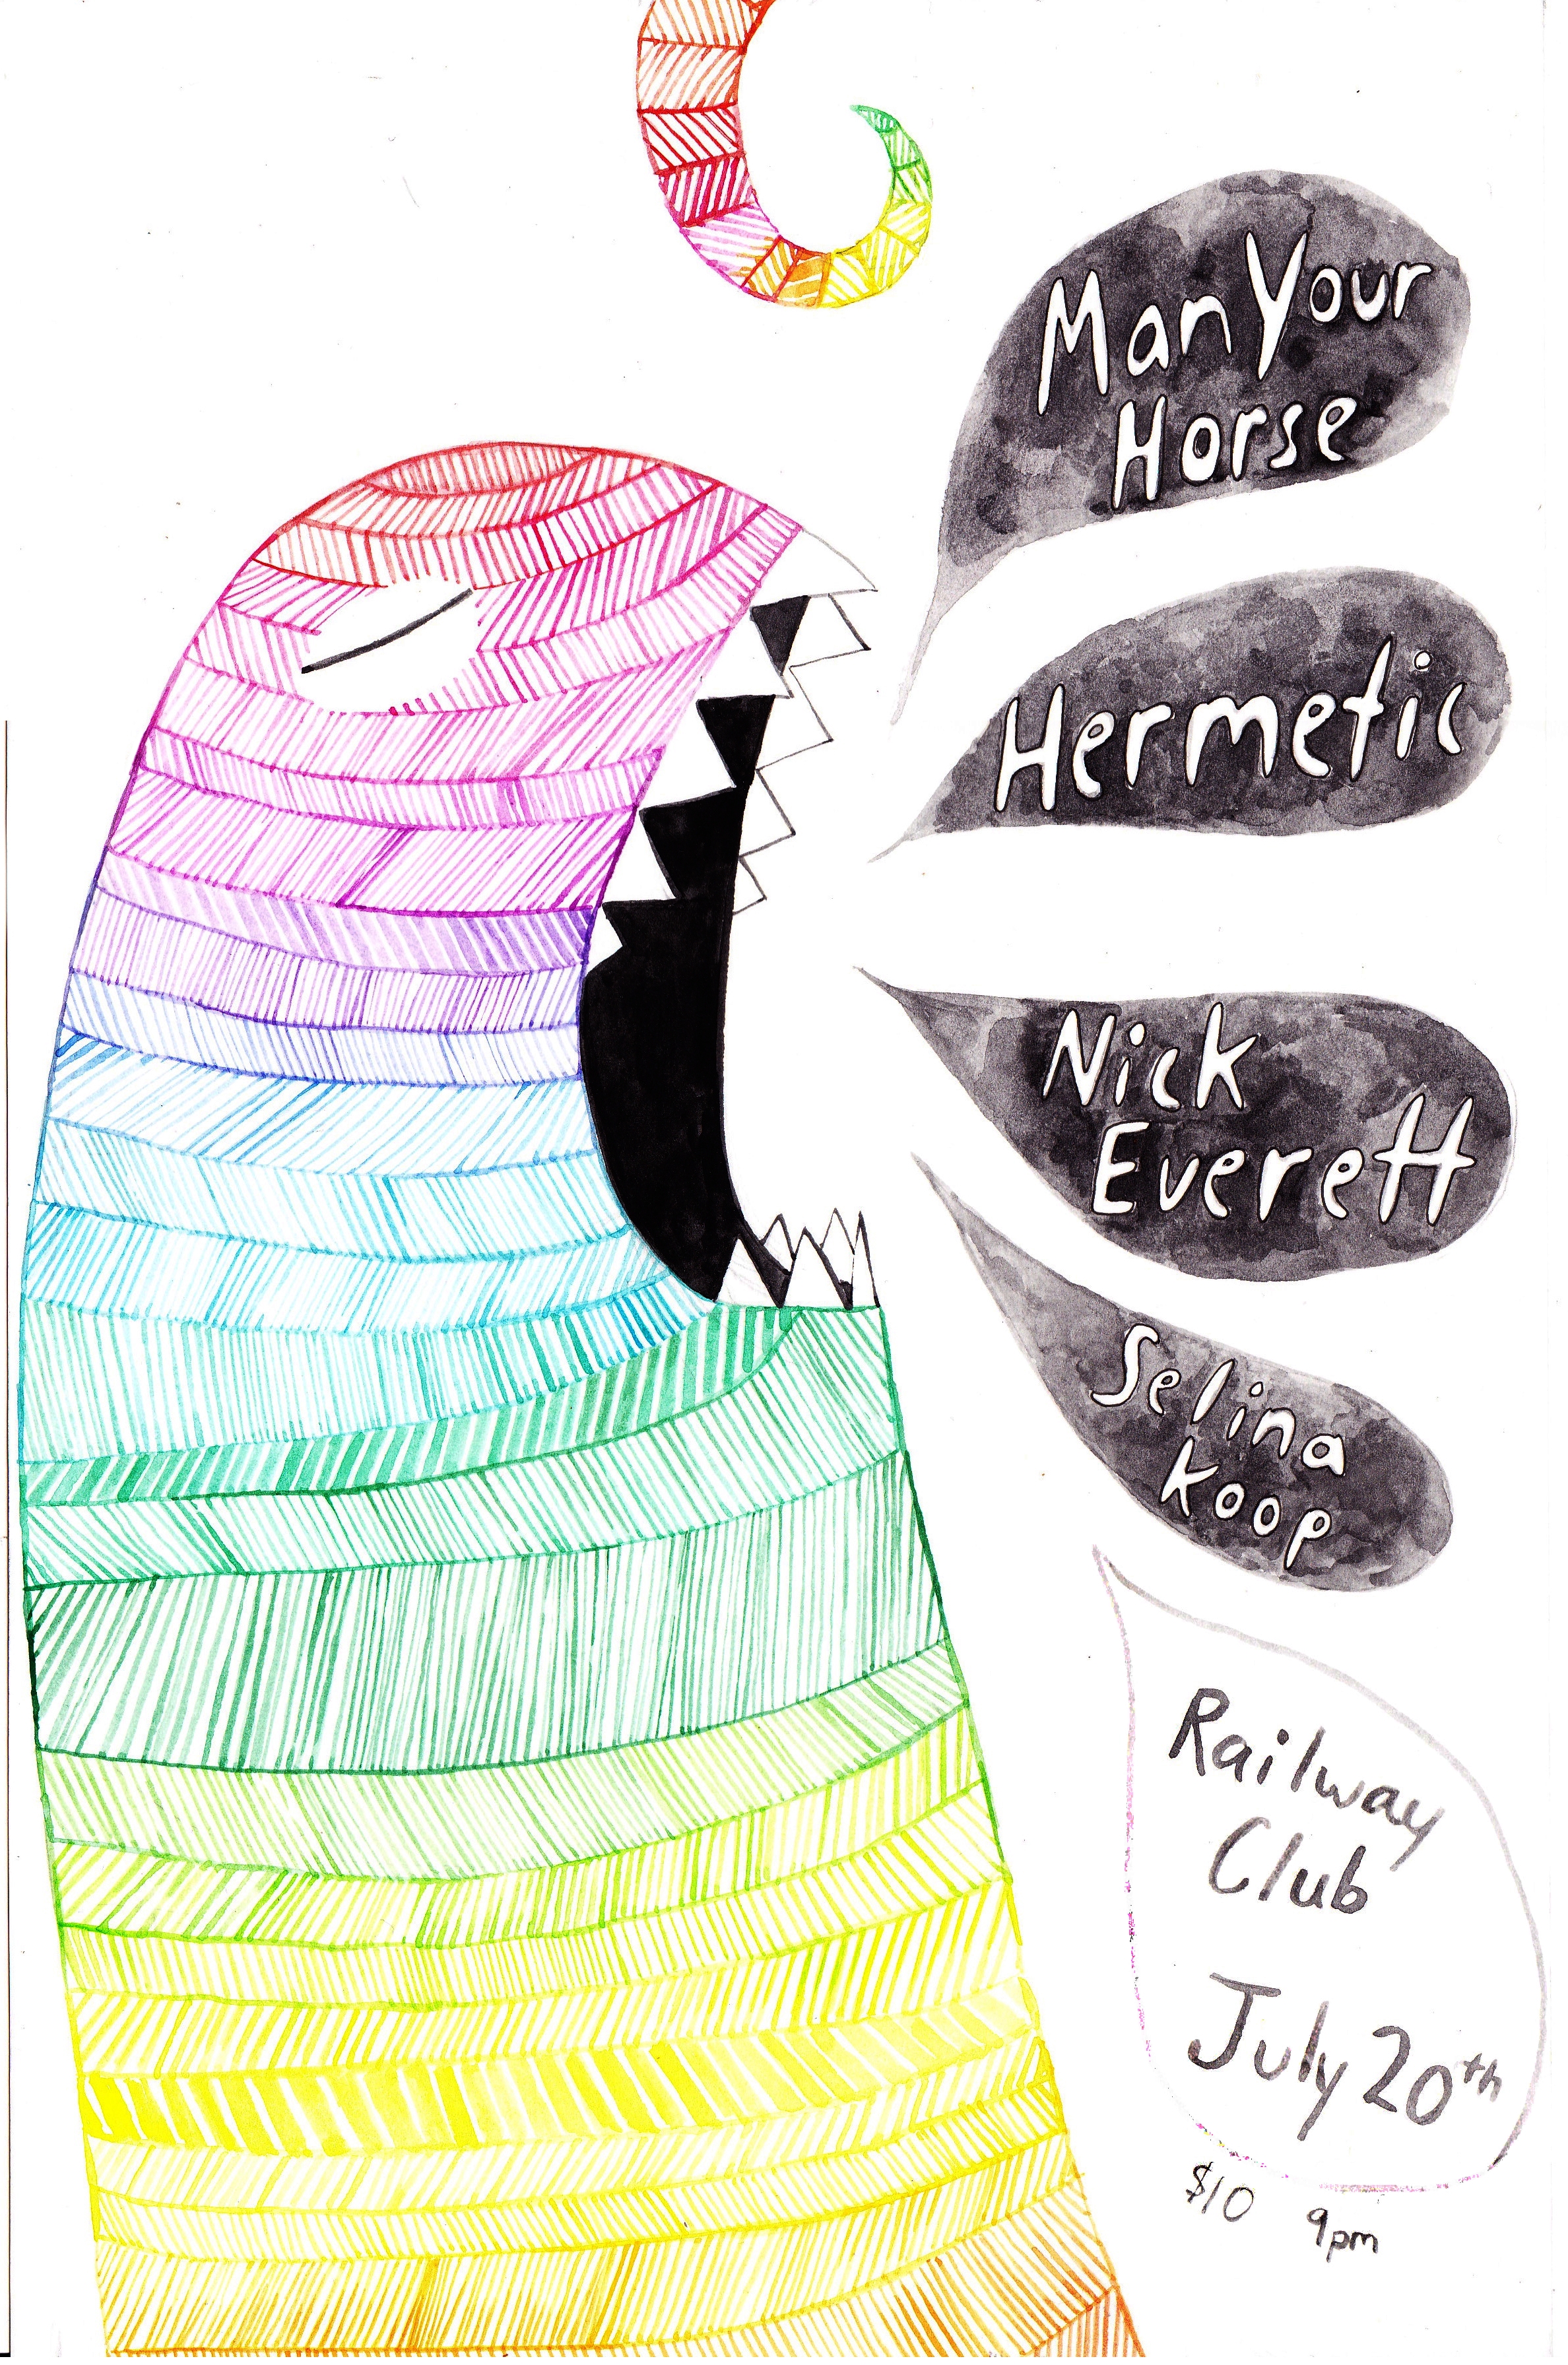 Man Your
Horse
Hermetic
Nick
Everett
Selina
Koop
Railway
Club
July 20th
$10 9pm